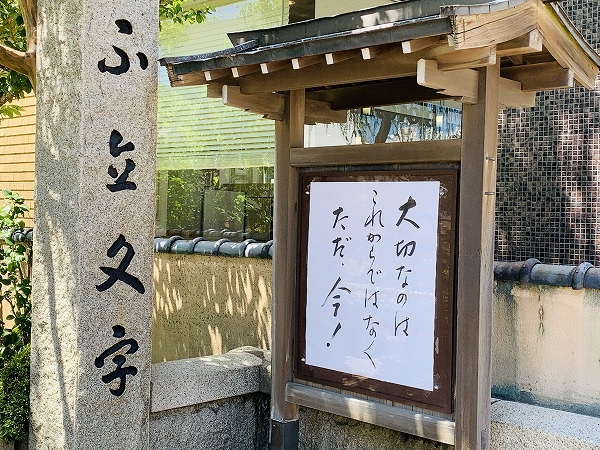 不立文字
大切なのは
これからではなく
ただ、今!